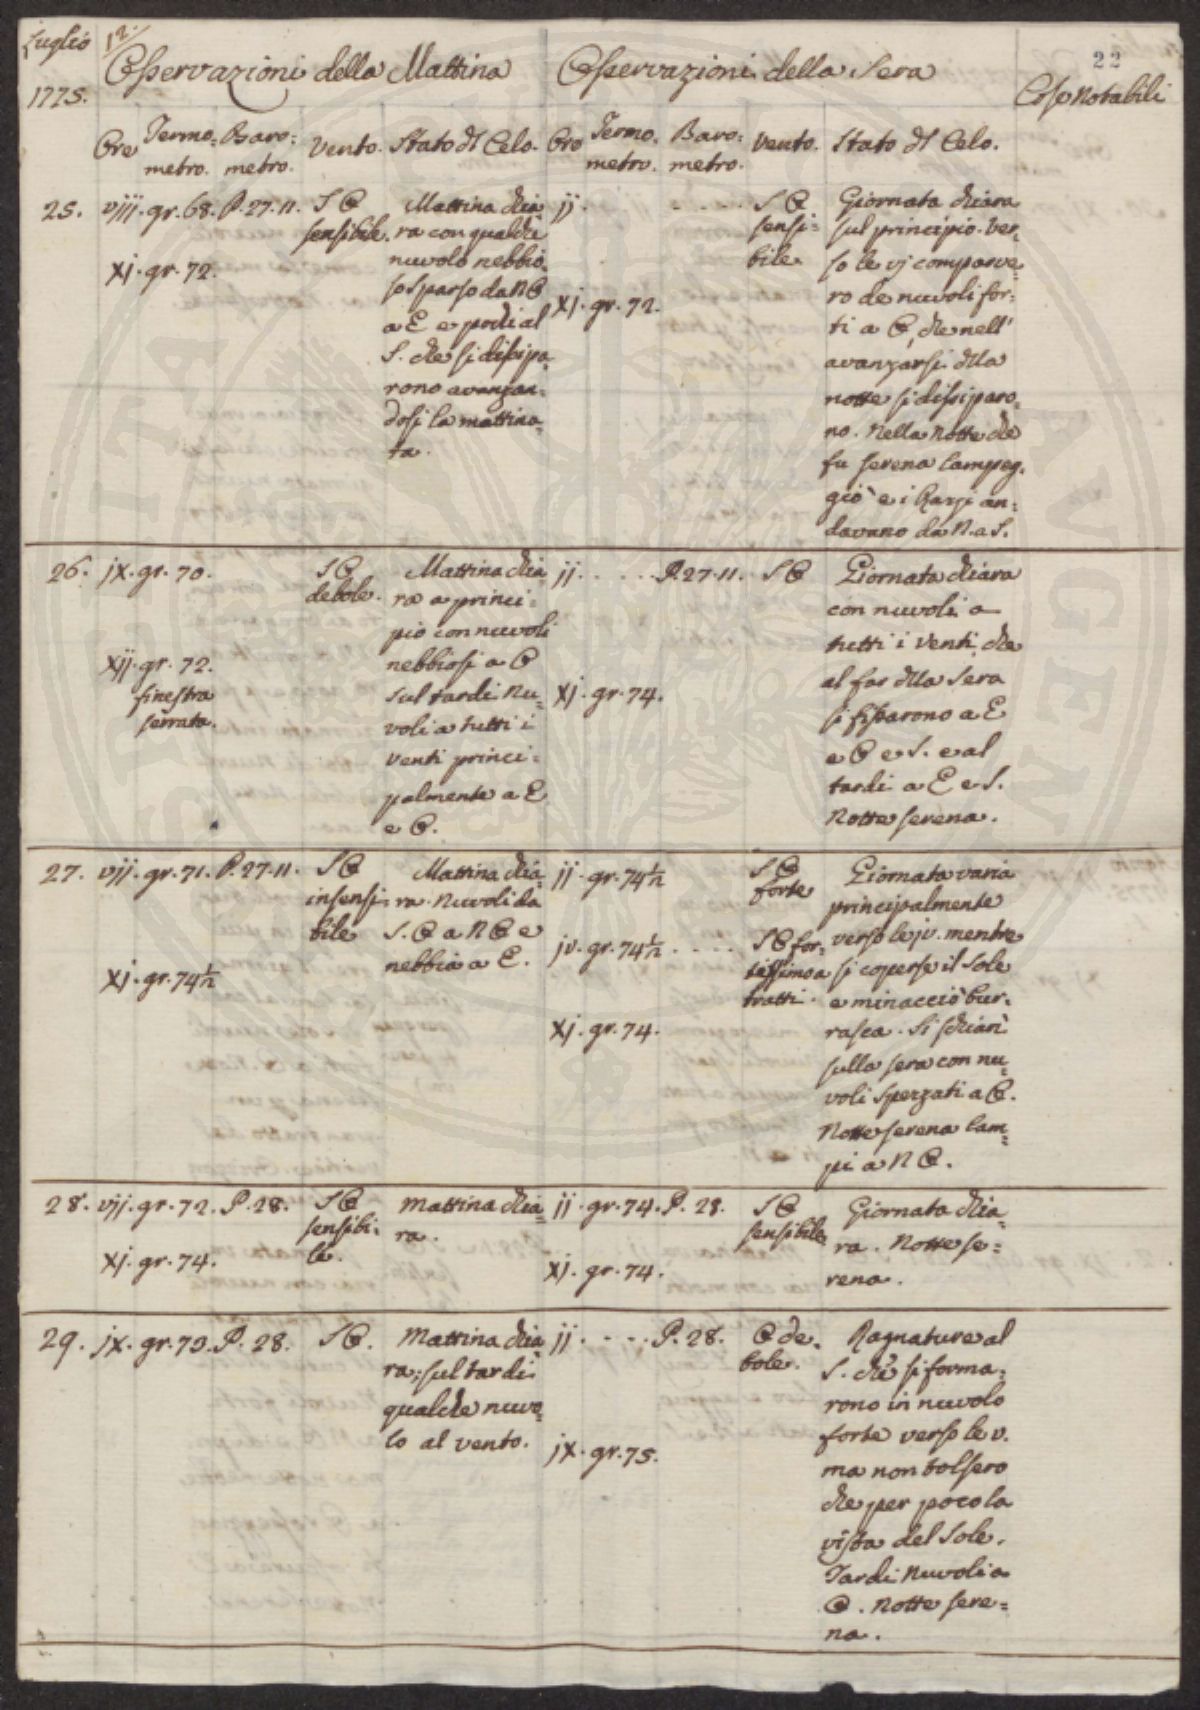 Luglio
1775.
12.
Osservazioni della Mattina
Osservazioni della Sera
22
Cose Notabili
Ore
Termo=
metro.
Baro=
metro.
Vento.
Stato dl Celo.
Ore
Termo.
metro.
Baro=
metro.
Vento.
Stato dl Celo.
25.
viij. gr. 68. P. 27. 11.
xj. gr. 72.
S O
sensibile.
Mattina chia
ra con qualche
nuvolo nebbio
so sparso da N O
a E e pochi al
S. che si dissipa
rono avanzan=
dosi la mattina
ta.
ij. . . . .
xj. gr. 72.
S O
sensi=
bile
Giornata chiara
sul principio. Ver=
so le vj comparve=
ro de nuvoli for=
ti a O, che nell'
avanzarsi dlla
notte si dissiparo=
no. Nella Notte che
fu serena lampeg=
giò e i Razzi an=
davano da N. a S.
26.
jx. gr. 70.
xij. gr. 72.
finestra
serrata.
S O
debole.
Mattina chia
ra a princi=
pio con nuvoli
nebbiosi a O
sul tardi Nu=
voli a tutti i
venti princi=
palmente a E
e O.
ij. . . . . P. 27. 11.
xj. gr. 74.
S O
Giornata chiara
con nuvoli a
tutti i venti, che
al far dlla Sera
si fissarono a E
e O e S. e al
tardi a E e S.
Notte serena.
27.
vij. gr. 71. P. 27. 11.
xj. gr. 74 1/2
S O
insensi=
bile
Mattina chia=
ra. Nuvoli da
S. O a N O e
nebbia a E.
ij. gr. 74 1/2
jv. gr. 74 1/2 . . . .
xj. gr. 74.
S O
forte
S O for=
tissimo a
tratti.
Giornata varia
principalmente
verso le jv. mentre
si coperse il Sole
e minacciò bur=
rasca. Si schiarì
sulla sera con nu=
voli spezzati a O.
Notte serena lam=
pi a N O.
28.
vij. gr. 72. P. 28.
xj. gr. 74.
S O
sensibi=
le.
Mattina chia=
ra.
ij. gr. 74. P. 28.
xj. gr. 74.
S O
sensibile
Giornata chia=
ra. Notte se=
rena.
29.
jx. gr. 73. P. 28.
S O.
Mattina chia
ra; sul tardi
qualche nuvo=
lo al vento.
ij. . . . P. 28.
jx. gr. 75.
O de=
bole.
Ragnature al
S. che si forma=
rono in nuvolo
forte verso le v.
ma non tolsero
che per poco la
vista del Sole.
Tardi Nuvoli a
O. Notte sere=
na.